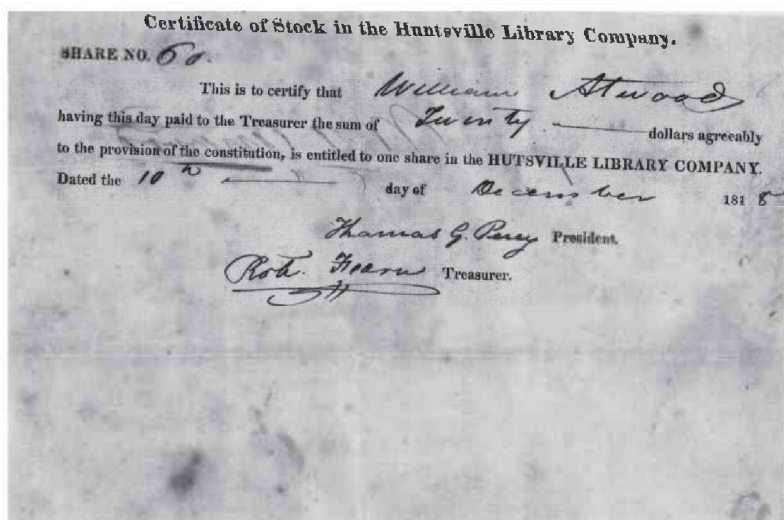 Certificate of Stock in the Huntsville Library Company.
SHARE NO. 60.
This is to certify that William Atwood
having this day paid to the Treasurer the sum of Twenty dollars agreeably
to the provision of the constitution, is entitled to one share in the HUTSVILLE LIBRARY COMPANY.
Dated the 10th day of December 1818
Thomas G. Percy President.
Robt. Fearn Treasurer.